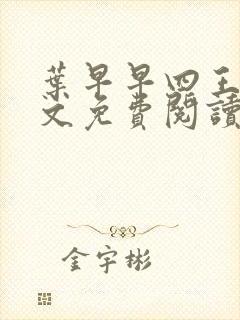 葉早早四王
文免費閱讀
金宇彬